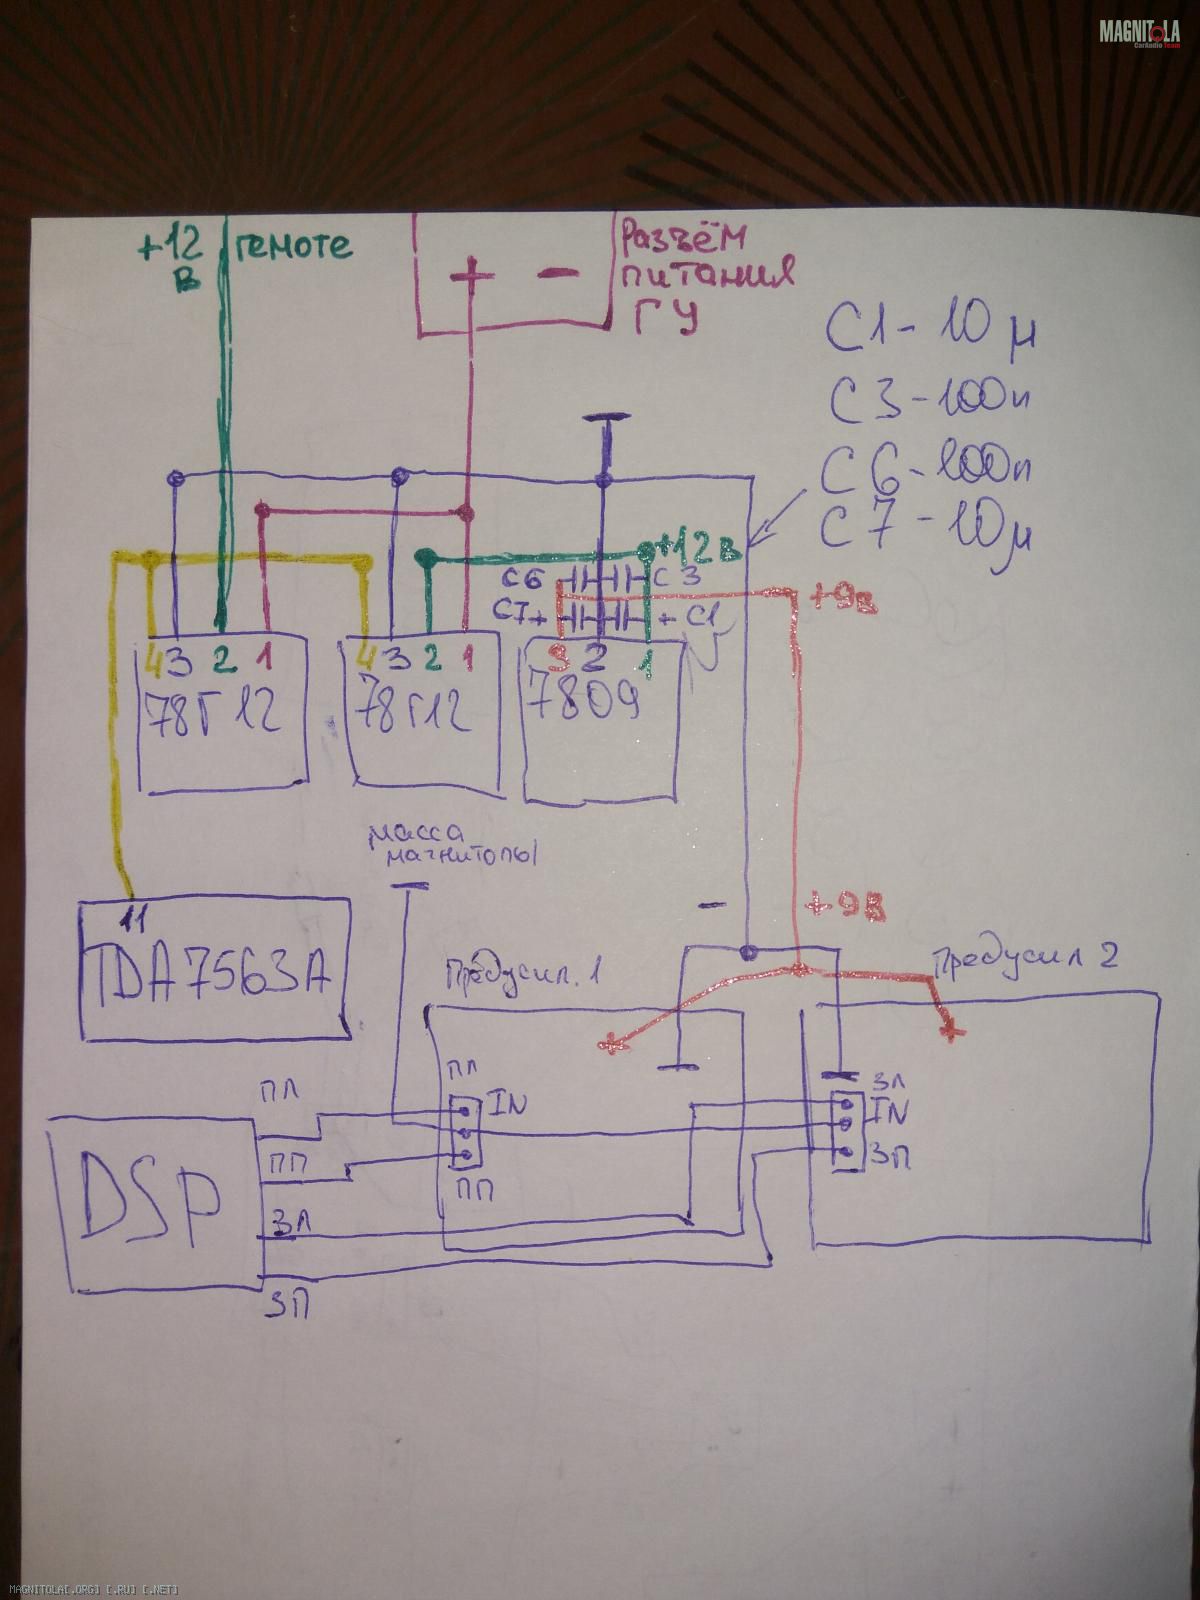 MAGNITOLA
CarAudio Team
+12 В
remote
+ -
Разъём
питания
ГУ
C1-10 µ
C3-100n
C6-100n
C7-10µ
+12 в
C6
C3
+9В
C7+
+ C1
4 3 2 1
78r12
4 3 2 1
78r12
3 2 1
7809
масса
магнитолы
-
+9В
11
TDA7563A
Предусил. 1
Предусил 2
+
+
ПЛ
ПЛ
IN
ЗЛ
IN
DSP
ПП
ПП
ЗП
ЗЛ
ЗП
MAGNITOLA[.ORG] [.RU] [.NET]